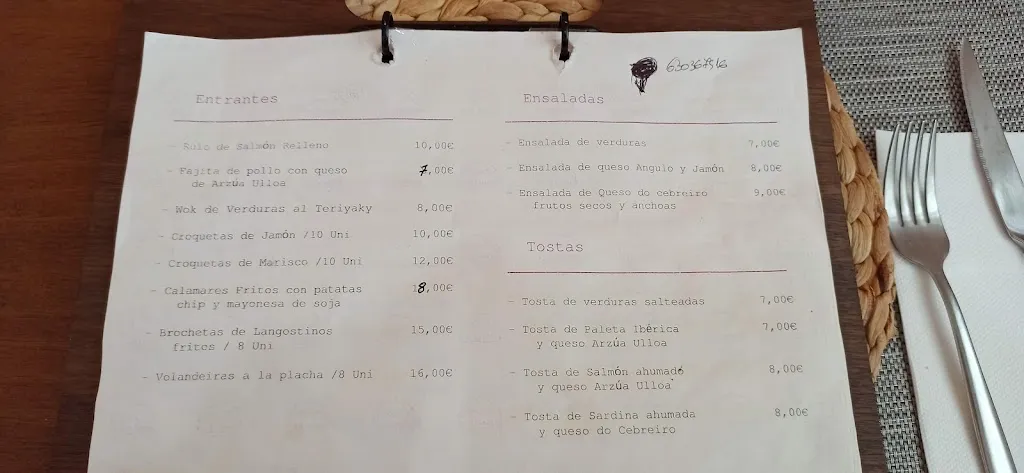 Entrantes
- Rulo de Salmón Relleno 10,00€
- Fajita de pollo con queso 7,00€
de Arzúa Ulloa
- Wok de Verduras al Teriyaky 8,00€
- Croquetas de Jamón /10 Uni 10,00€
- Croquetas de Marisco /10 Uni 12,00€
- Calamares Fritos con patatas 18,00€
chip y mayonesa de soja
- Brochetas de Langostinos 15,00€
fritos / 8 Uni
- Volandeiras a la placha /8 Uni 16,00€
Ensaladas
- Ensalada de verduras 7,00€
- Ensalada de queso Angulo y Jamón 8,00€
- Ensalada de Queso do cebreiro 9,00€
frutos secos y anchoas
Tostas
- Tosta de verduras salteadas 7,00€
- Tosta de Paleta Ibérica 7,00€
y queso Arzúa Ulloa
- Tosta de Salmón ahumado 8,00€
y queso Arzúa Ulloa
- Tosta de Sardina ahumada 8,00€
y queso do Cebreiro